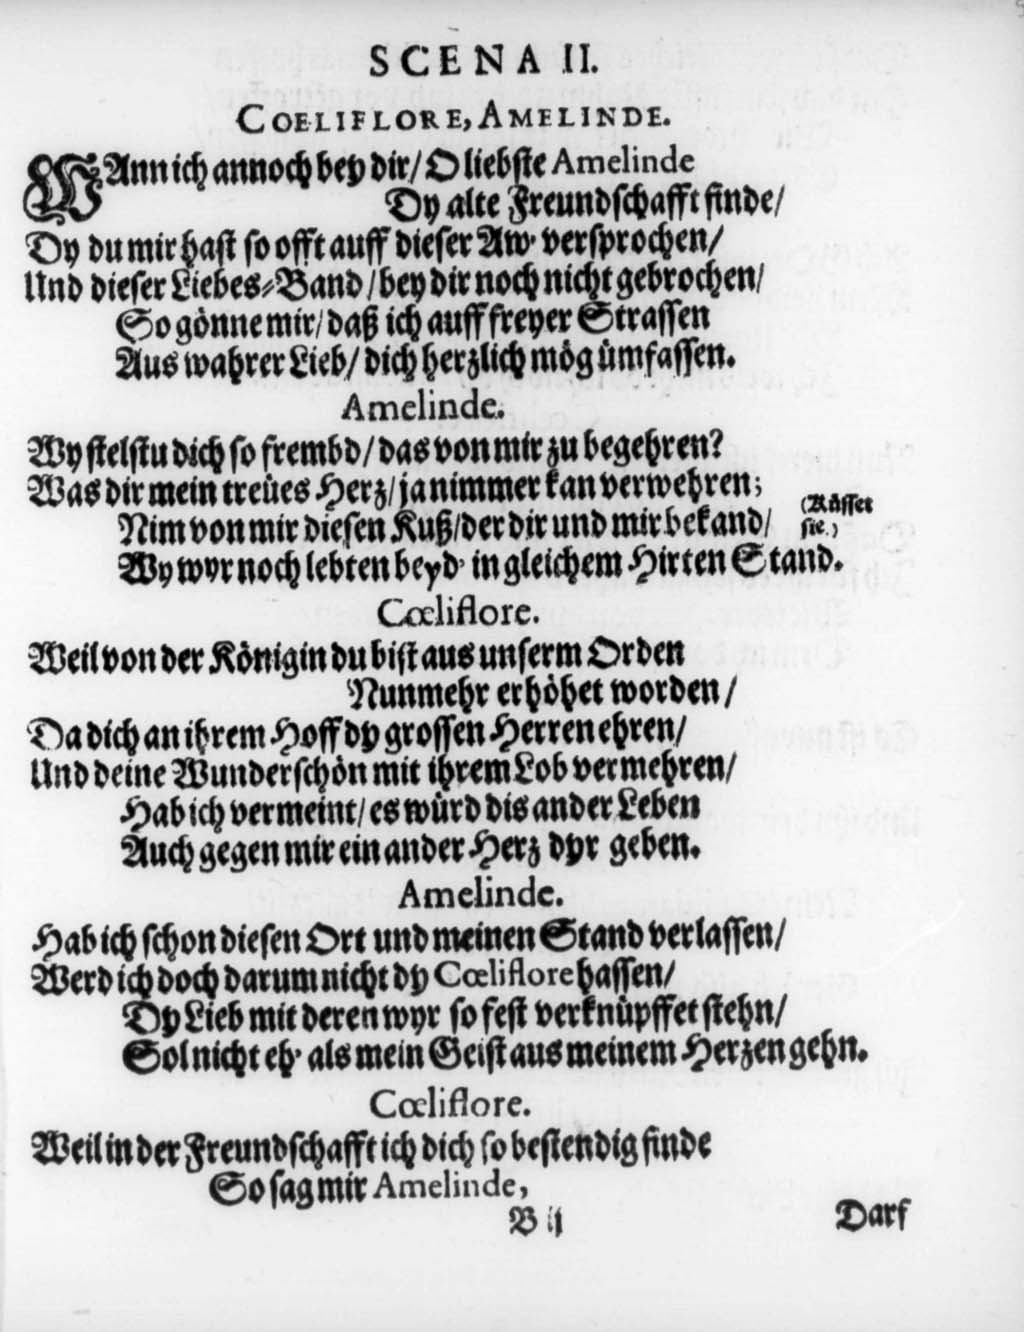 SCENA II.
COELIFLORE, AMELINDE.
WAnn ich annoch bey dir/ O liebste Amelinde
Dy alte Freundschafft finde/
Dy du mir hast so offt auff dieser Aw' versprochen/
Und dieser Liebes-Band/ bey dir noch nicht gebrochen/
So gönne mir/ daß ich auff freyer Strassen
Aus wahrer Lieb/ dich herzlich mög ümfassen.
Amelinde.
Wy stelstu dich so frembd/ das von mir zu begehren?
Was dir mein treües Herz/ ja nimmer kan verwehren;
Nim von mir diesen Kuß/ der dir und mir bekand/ (Küsset
sie.)
Wy wyr noch lebten beyd' in gleichem Hirten Stand.
Cœliflore.
Weil von der Königin du bist aus unserm Orden
Nunmehr erhöhet worden/
Da dich an ihrem Hoff dy grossen Herren ehren/
Und deine Wunderschön mit ihrem Lob vermehren/
Hab ich vermeint/ es würd dis ander Leben
Auch gegen mir ein ander Herz dyr geben.
Amelinde.
Hab ich schon diesen Ort und meinen Stand verlassen/
Werd ich doch darum nicht dy Cœliflore hassen/
Dy Lieb mit deren wyr so fest verknüpffet stehn/
Sol nicht eh' als mein Geist aus meinem Herzen gehn.
Cœliflore.
Weil in der Freundschafft ich dich so bestendig finde
So sag mir Amelinde,
B ij Darf